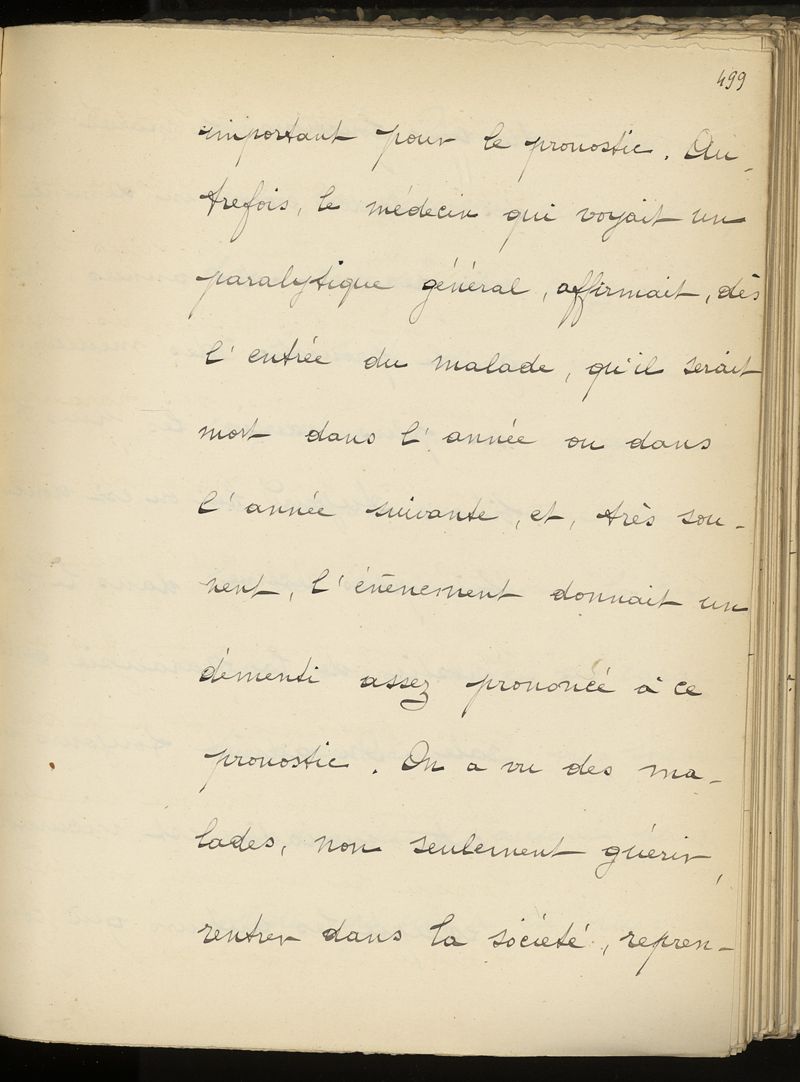 499
important pour le pronostic. Au-
trefois, le médecin qui voyait un
paralytique général, affirmait, dès
l'entrée du malade, qu'il serait
mort dans l'année ou dans
l'année suivante, et, très sou-
vent, l'événement donnait un
démenti assez prononcé à ce
pronostic. On a vu des ma-
lades, non seulement guérir,
rentrer dans la société, repren-